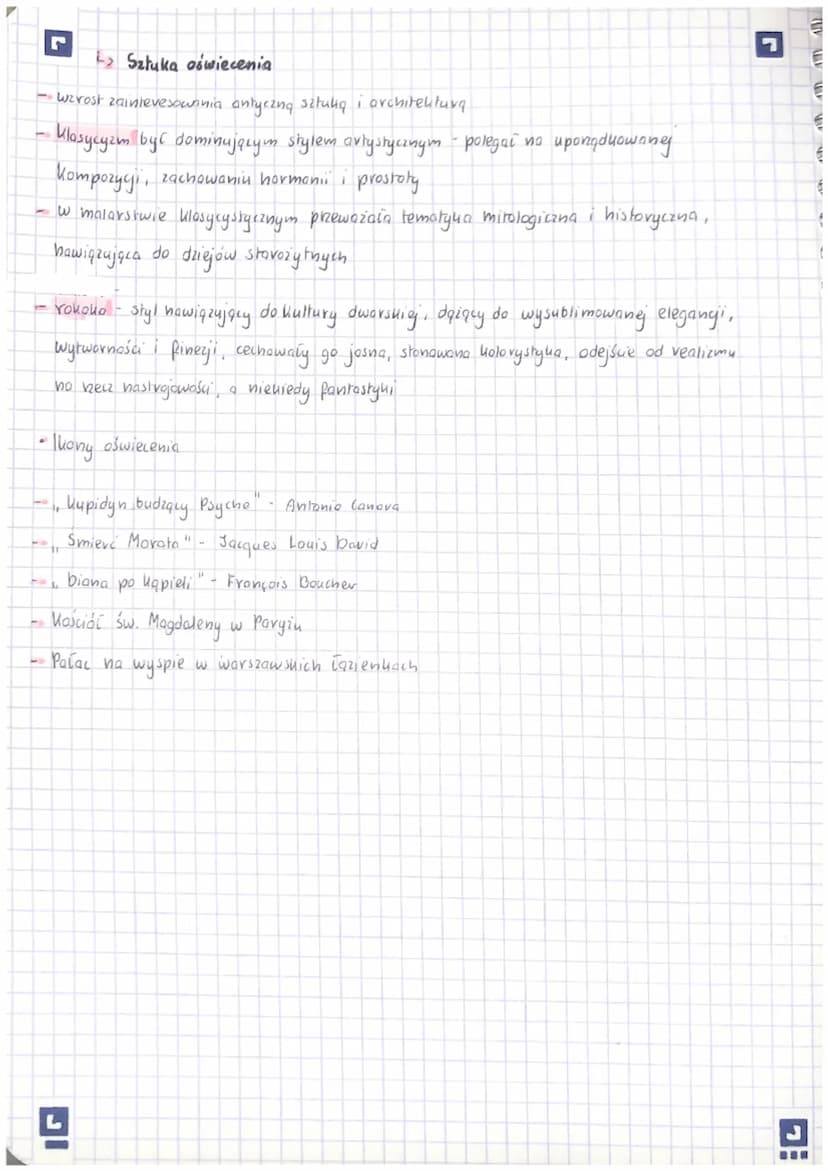 ↳ Sztuka oświecenia
- wzrost zainteresowania antyczną sztuką i architekturą
- Klasycyzm był dominującym stylem artystycznym - polegał na uporządkowanej
kompozycji, zachowaniu harmonii i prostoty
- w malarstwie klasycystycznym przeważała tematyka mitologiczna i historyczna,
nawiązująca do dziejów starożytnych
- rokoko - styl nawiązujący do kultury dworskiej, dążący do wysublimowanej elegancji,
wytworności i finezji, cechowały go jasna, stonowana kolorystyka, odejście od realizmu
na rzecz nastrojowości, a niekiedy fantastyki
• Ikony oświecenia
- „Kupidyn budzący Psyche" - Antonio Canova
- „Śmierć Marata" - Jacques Louis David
- „Diana po kąpieli" - François Boucher
- Kościół św. Magdaleny w Paryżu
- Pałac na wyspie w warszawskich Łazienkach